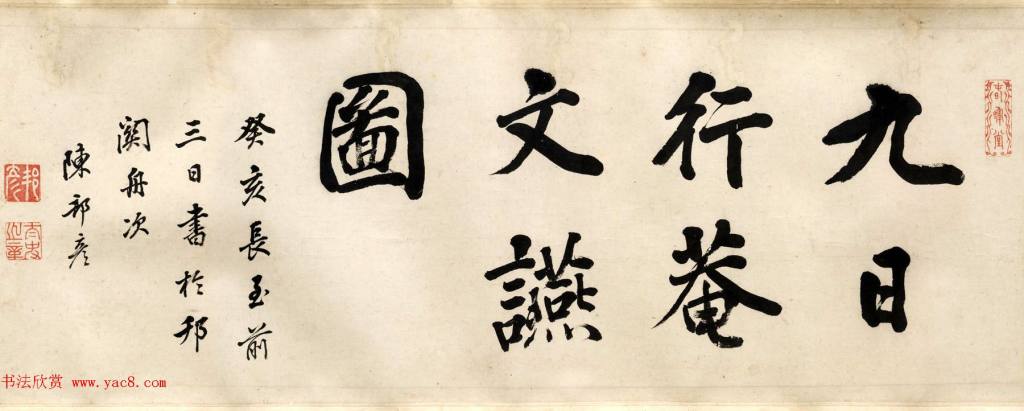 九日
行菴
文讌
圖
癸亥長至前
三日書於邗
關舟次
陳邦彥
邦彥
書法欣赏 www.yac8.com